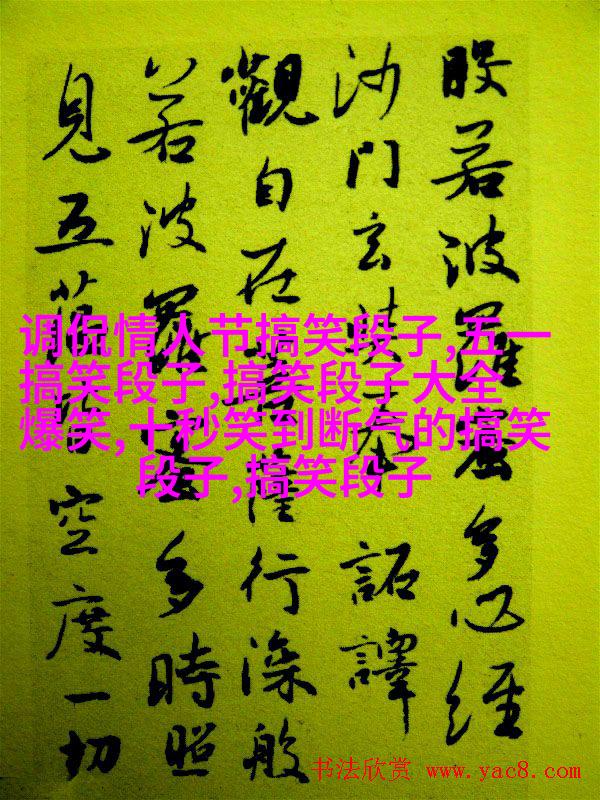 般若波羅蜜多心經
沙門玄奘奉 詔譯
觀自在菩薩行深般
若波羅蜜多時照
見五蘊皆空度一切
调侃情人节搞笑段子,五一
搞笑段子,搞笑段子大全
爆笑,十秒笑到断气的搞笑
段子,搞笑段子
书法欣赏 www.yac8.com